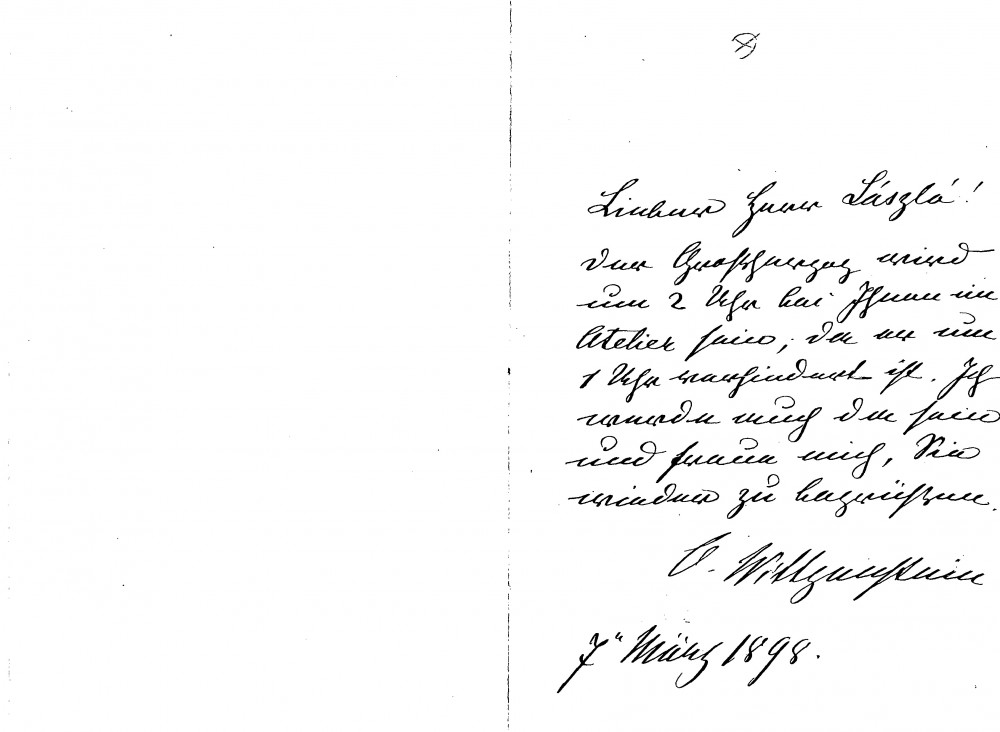 Lieber Herr László!
der Großherzog wird
um 2 Uhr bei Ihnen im
Atelier sein, da er um
1 Uhr verhindert ist. Ich
werde auch da sein
und freue mich, Sie
wieder zu begrüßen.
O. Wittgenstein
7" März 1898.